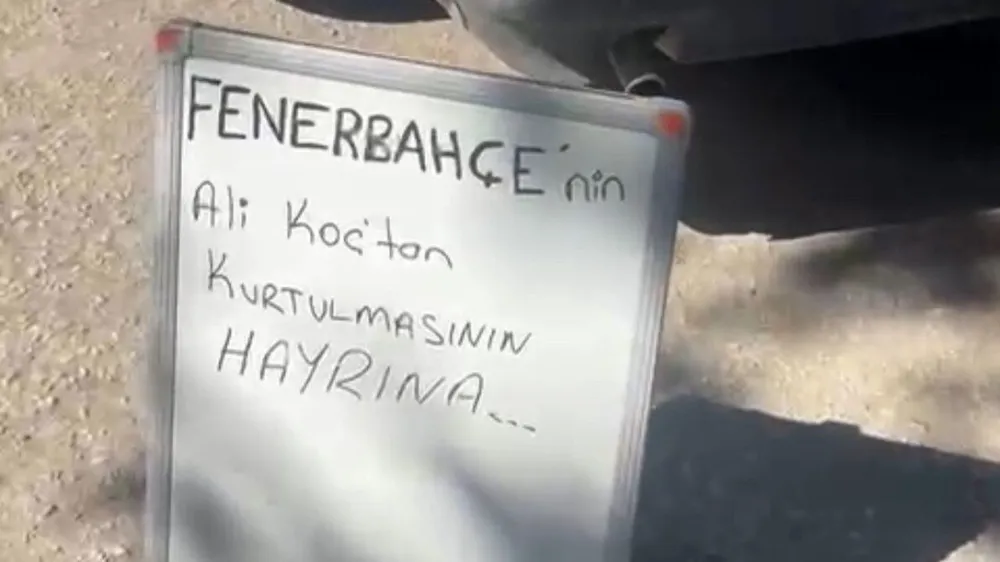 FENERBAHÇE'nin
Ali Koç'tan
KURTULMASININ
HAYRINA...